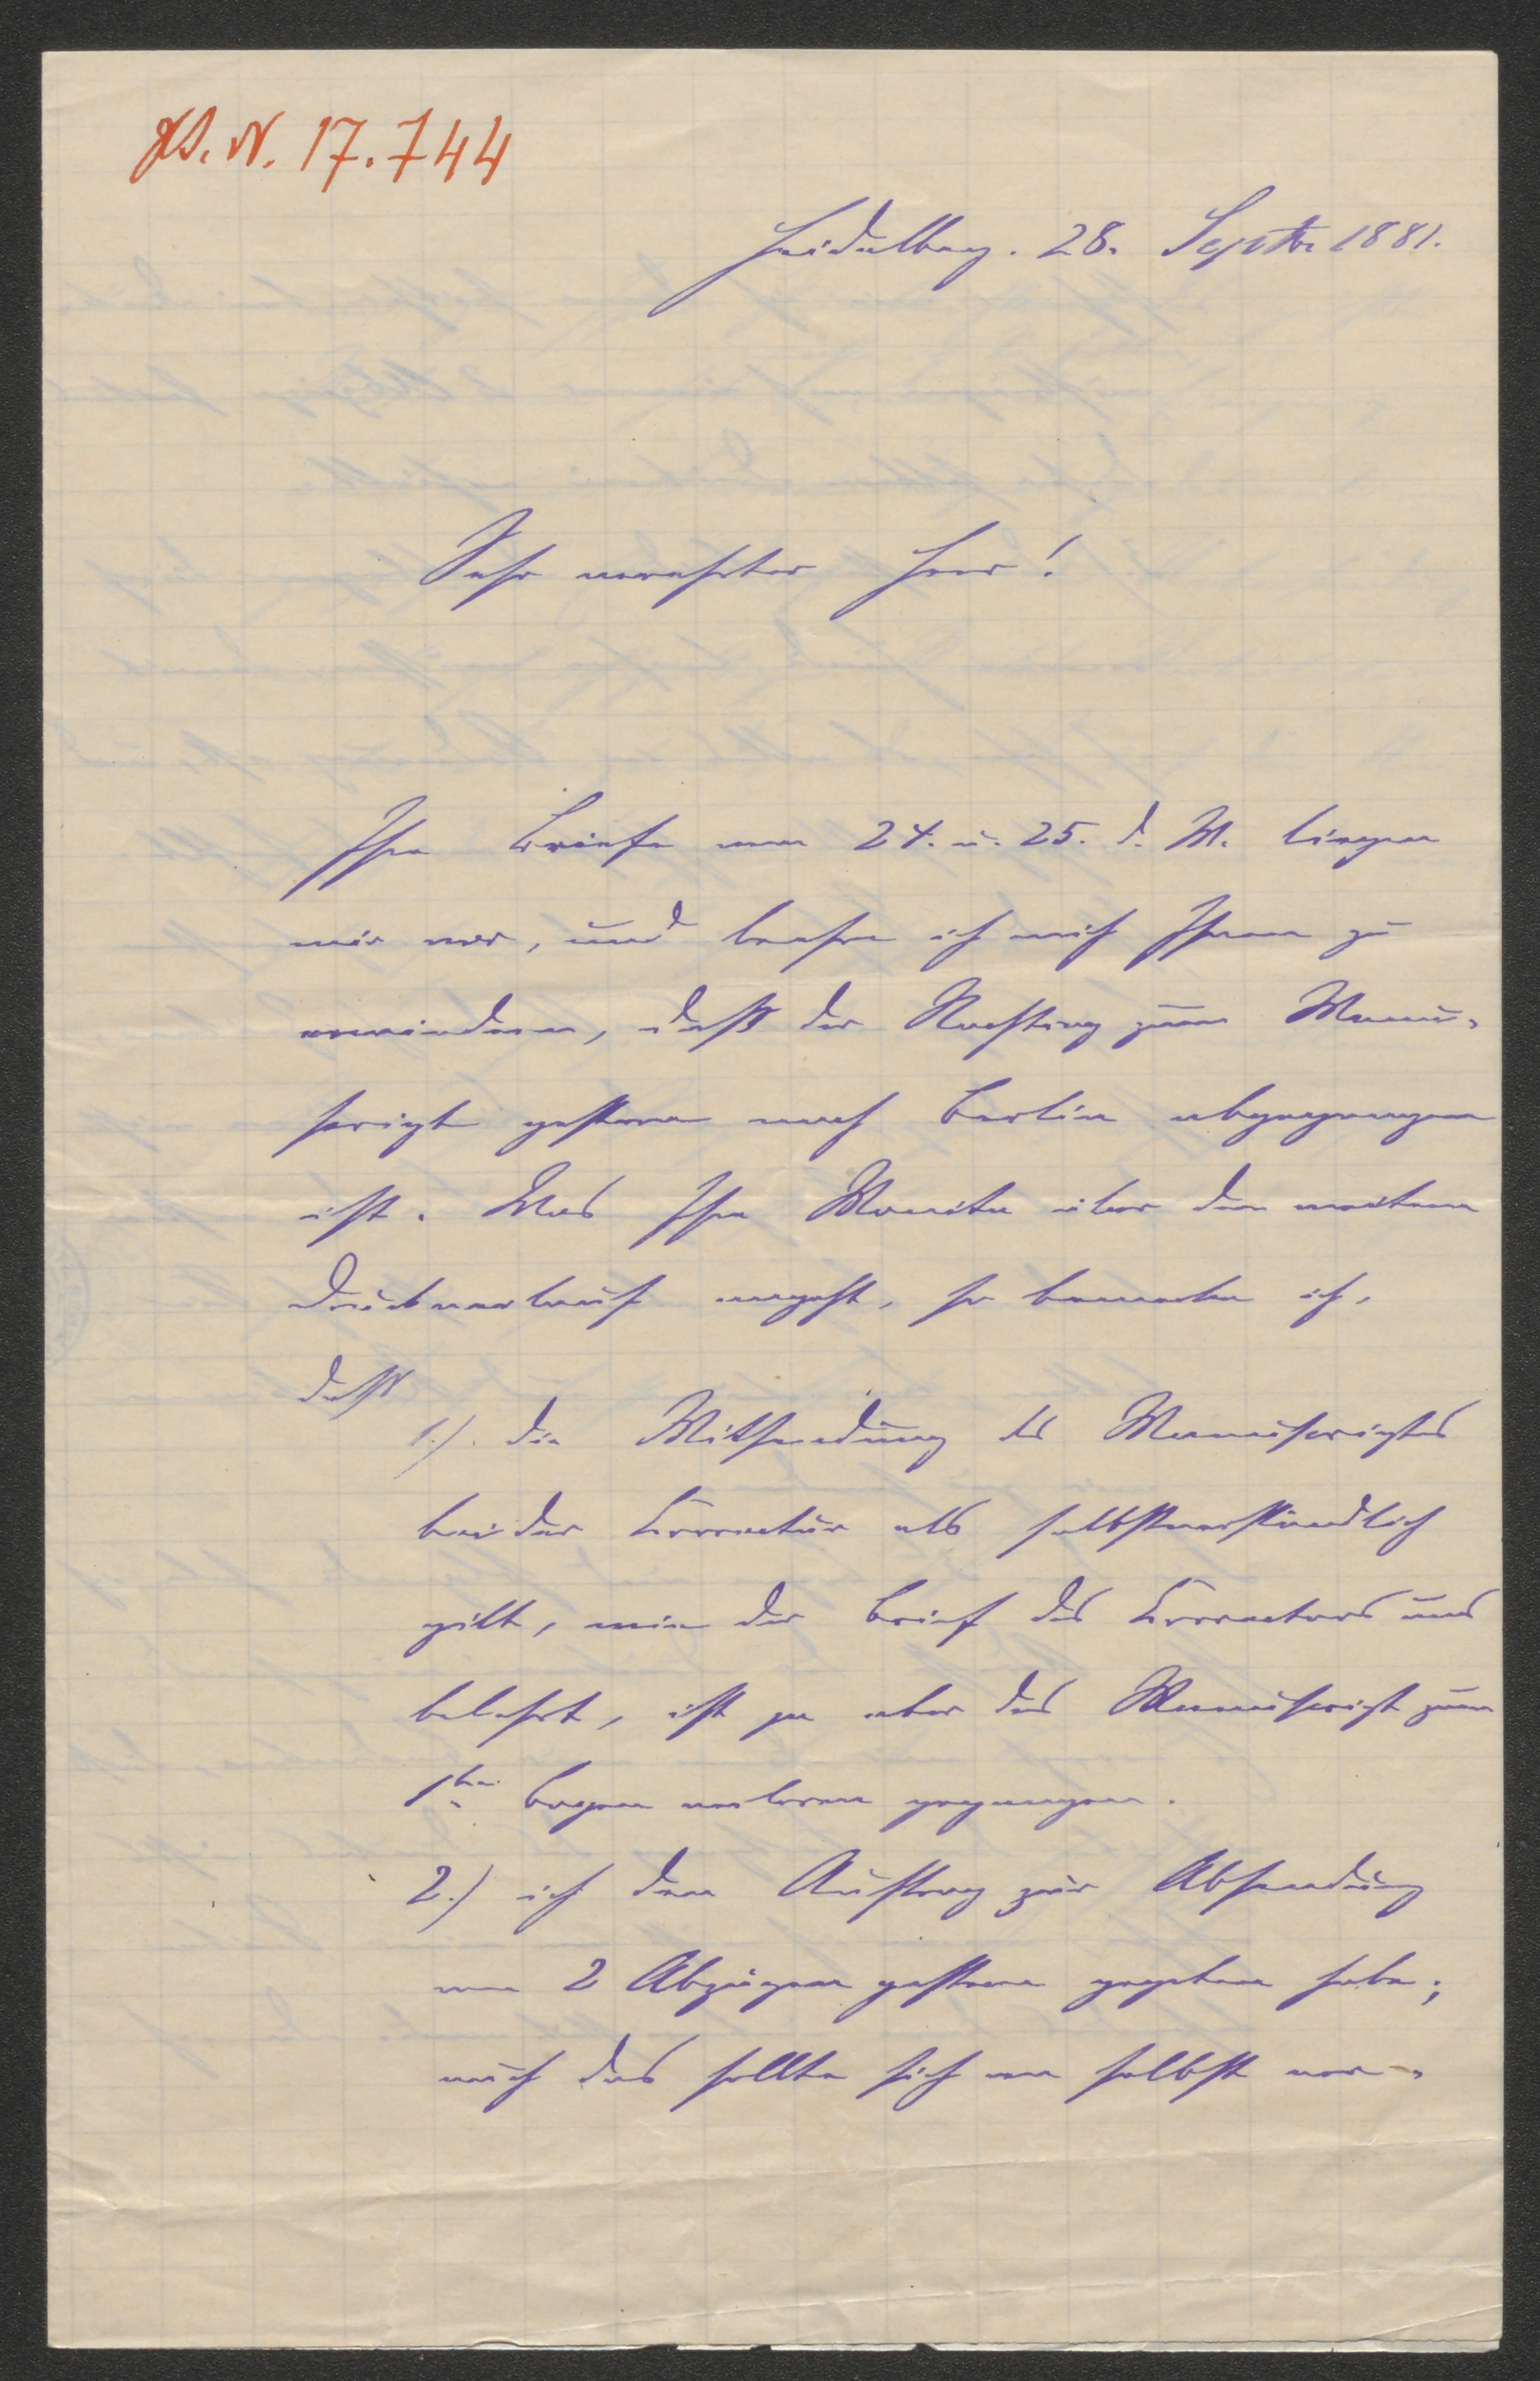 H.I.N. 17.744
Heidelberg. 28. Septbr 1881.
Sehr verehrter Herr!
Ihre Briefe vom 24. u. 25. d. M. liegen
mir vor, und beehre ich mich Ihnen zu
erwiedern, daß der Nachtrag zum Manu-
script gestern nach Berlin abgegangen
ist. Was Ihre Monita über den weitern
Druckverlauf angeht, so bemerke ich,
daß
1.) die Mitsendung des Manuscriptes
bei der Correctur als selbstverständlich
gilt, wie der Brief des Correctors uns
belehrt, ist ja aber das Manuscript zum
1ten Bogen verloren gegangen.
2.) ich den Auftrag zur Absendung
von 2 Abzügen gestern gegeben habe;
auch das sollte sich von selbst ver-